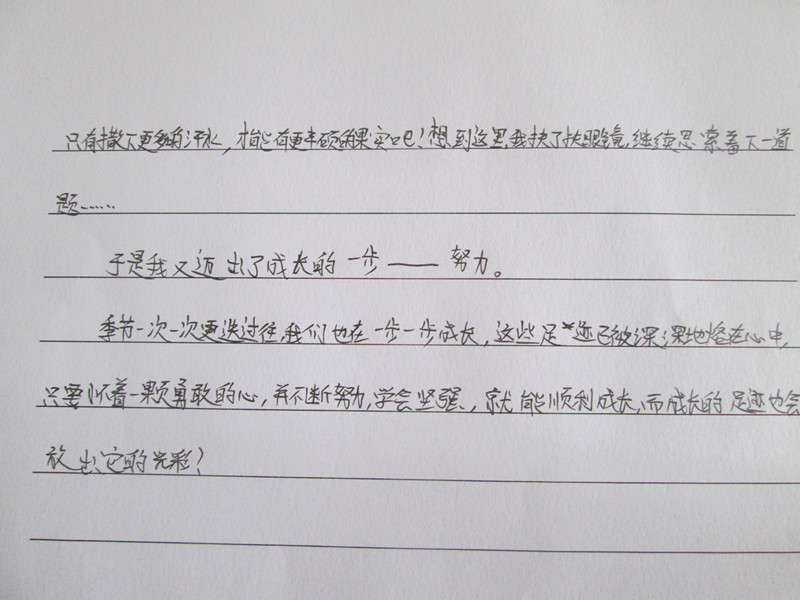 只有撒下更多的汗水，才能有更丰硕的果实吧！想到这里，我扶了扶眼镜，继续思索着下一道
题……
于是我又迈出了成长的一步——努力。
季节一次一次更迭过往，我们也在一步一步成长，这些足迹已被深深地烙在心中，
只要怀着一颗勇敢的心，并不断努力，学会坚强，就能顺利成长，而成长的足迹也会
放出它的光彩！